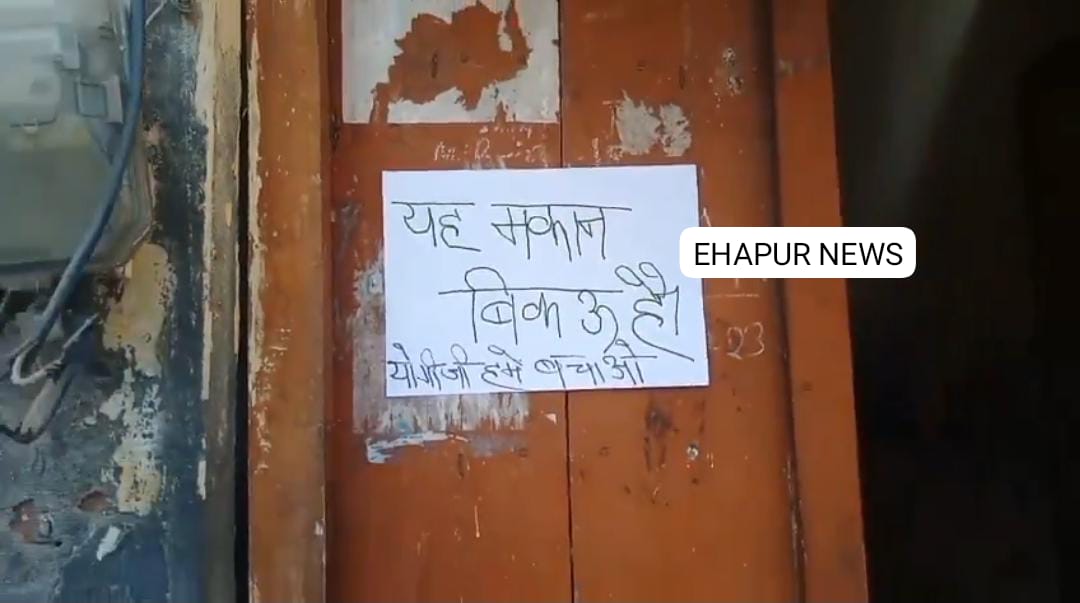 यह मकान
बिकाऊ है।
योगीजी हमे बचाओ
EHAPUR NEWS
23